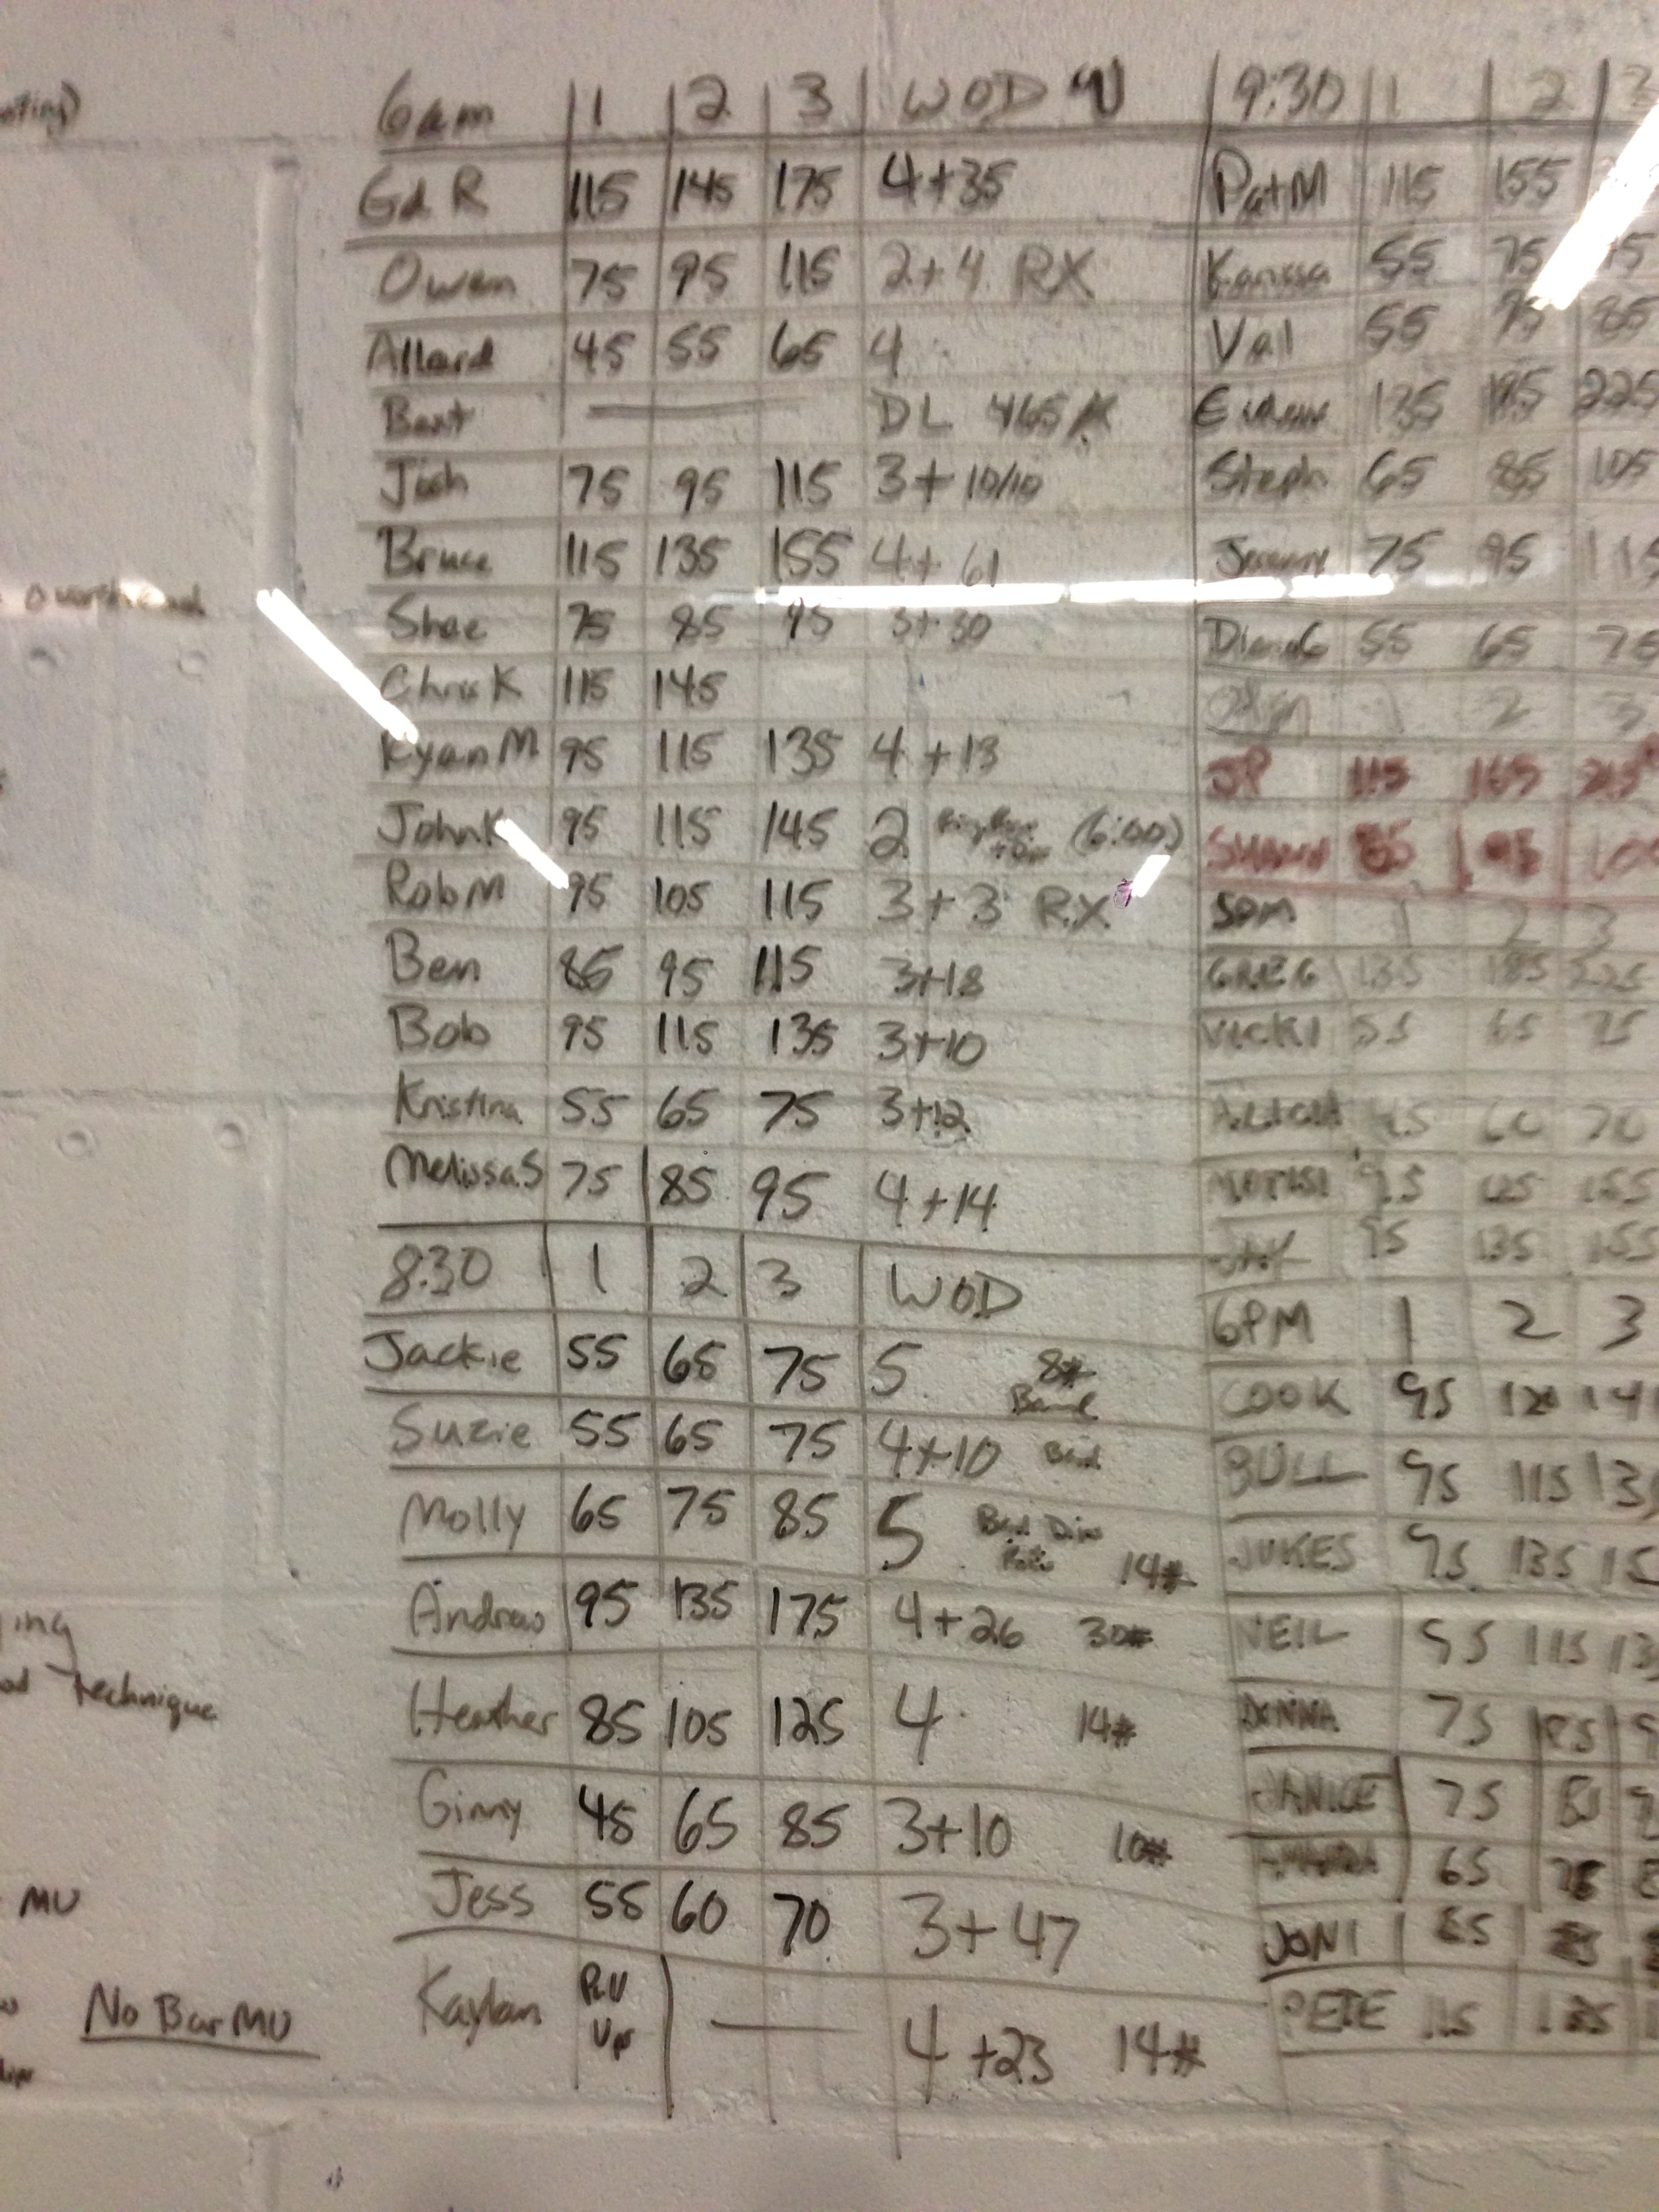 6am 1 2 3 WOD
Ed R 115 145 175 4+35
Owen 75 95 115 2+4 RX
Allard 45 55 65 4
Bart — DL 465
Josh 75 95 115 3+10/10
Bruce 115 135 155 4+61
Shae 75 85 95 3+30
Chris K 115 145
Ryan M 95 115 135 4+13
John K 95 115 145 2 (6:00)
Rob M 95 105 115 3+3 RX
Ben 85 95 115 3+18
Bob 95 115 135 3+10
Kristina 55 65 75 3+12
Melissa S 75 85 95 4+14
8:30 1 2 3 WOD
Jackie 55 65 75 5 8#
Band
Suzie 55 65 75 4+10 Band
Molly 65 75 85 5 Band 14#
Andrew 95 135 175 4+26 30#
Heather 85 105 125 4 14#
Ginny 45 65 85 3+10 10#
Jess 55 60 70 3+47
Kaylan Pull
Up — 4+23 14#
9:30 1 2 3
Pat M 115 155
Karissa 55 75
Val 55 75 85
135 195 225
Steph 65 85 105
Jeremy 75 95 115
55 65 75
1 2 3
JP 115 165 215
SHAWN 85 95
5PM 1 2 3
GREG 135 185 225
VICKI 55 65 75
60 70
95 125 155
JAY 95 135 155
6PM 1 2 3
COOK 95 120
BULL 95 115
JUKES 95 135
NEIL 95 115
DONNA 75 85
JANICE 75
65 75
JONI 65
PETE 115 135
technique
MU
No Bar MU